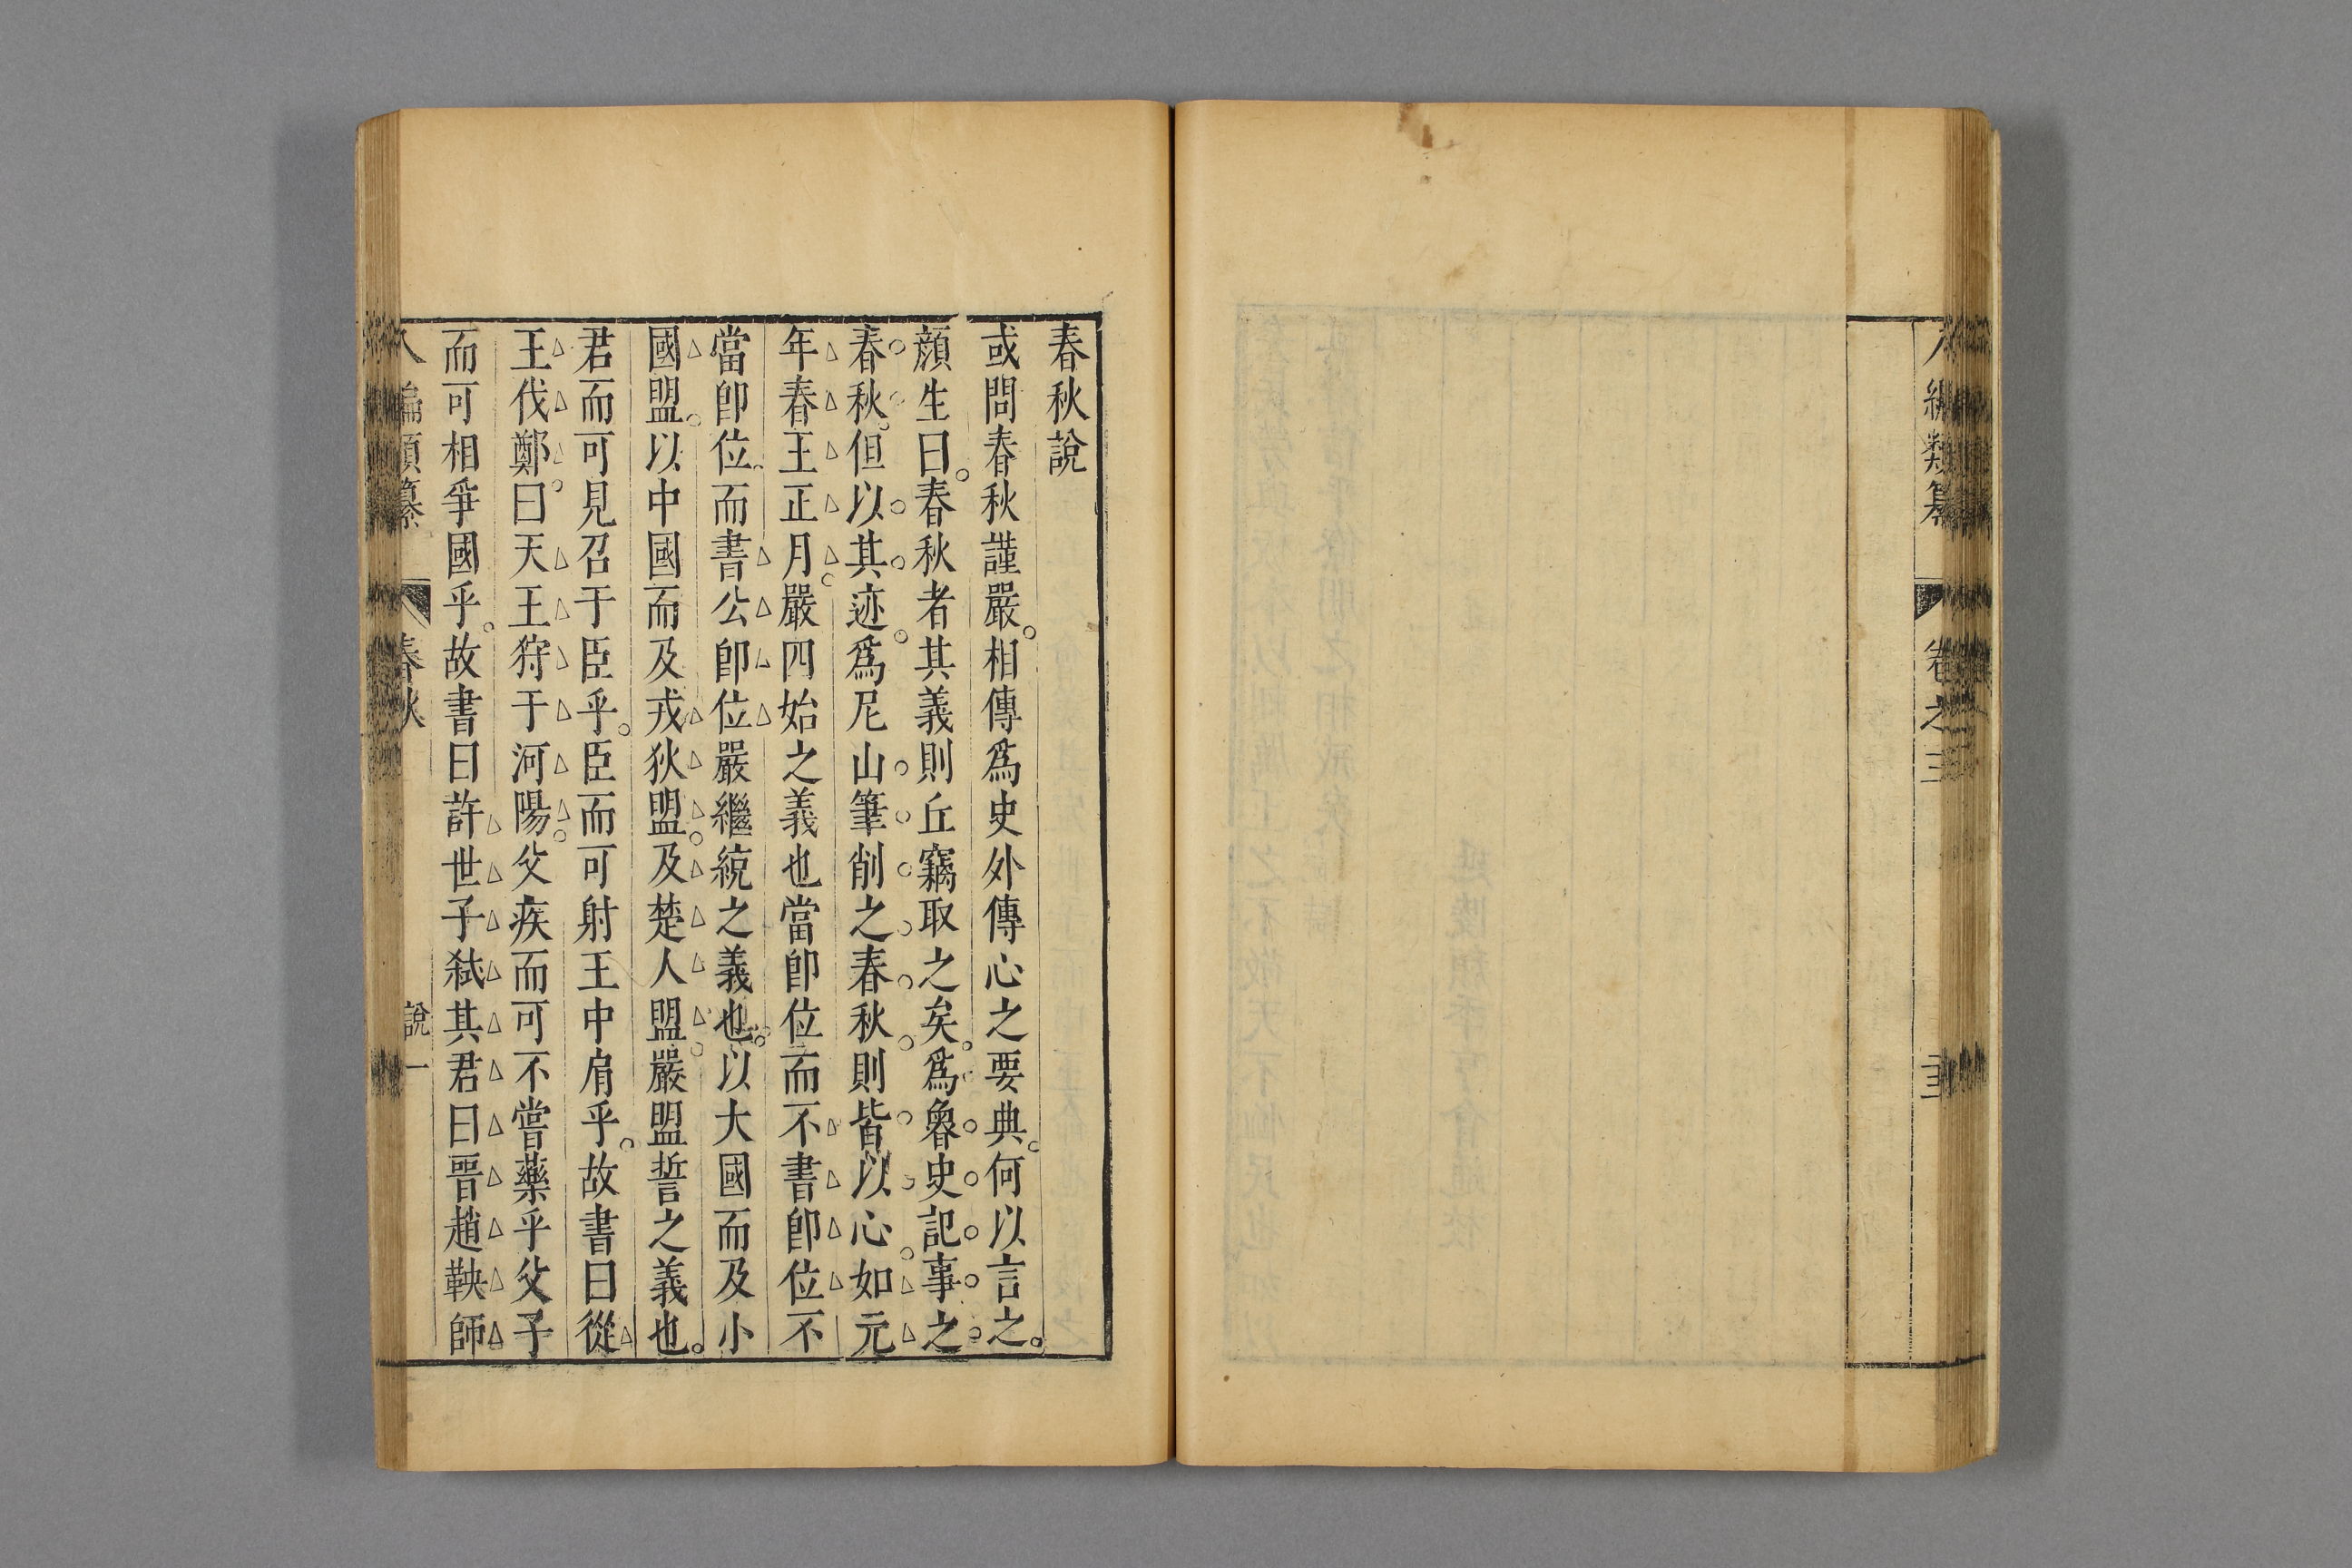 八編類纂 卷之三
春秋說
或問春秋謹嚴相傳爲史外傳心之要典何以言之
顏生曰春秋者其義則丘竊取之矣爲魯史記事之
春秋但以其迹爲尼山筆削之春秋則皆以心如元
年春王正月嚴四始之義也當卽位而不書卽位不
當卽位而書公卽位嚴繼統之義也以大國而及小
國盟以中國而及戎狄盟及楚人盟嚴盟誓之義也
君而可見召于臣乎臣而可射王中肩乎故書曰從
王伐鄭曰天王狩于河陽父疾而可不嘗藥乎父子
而可相爭國乎故書曰許世子弒其君曰晉趙鞅師
八編類纂 春秋 說 一